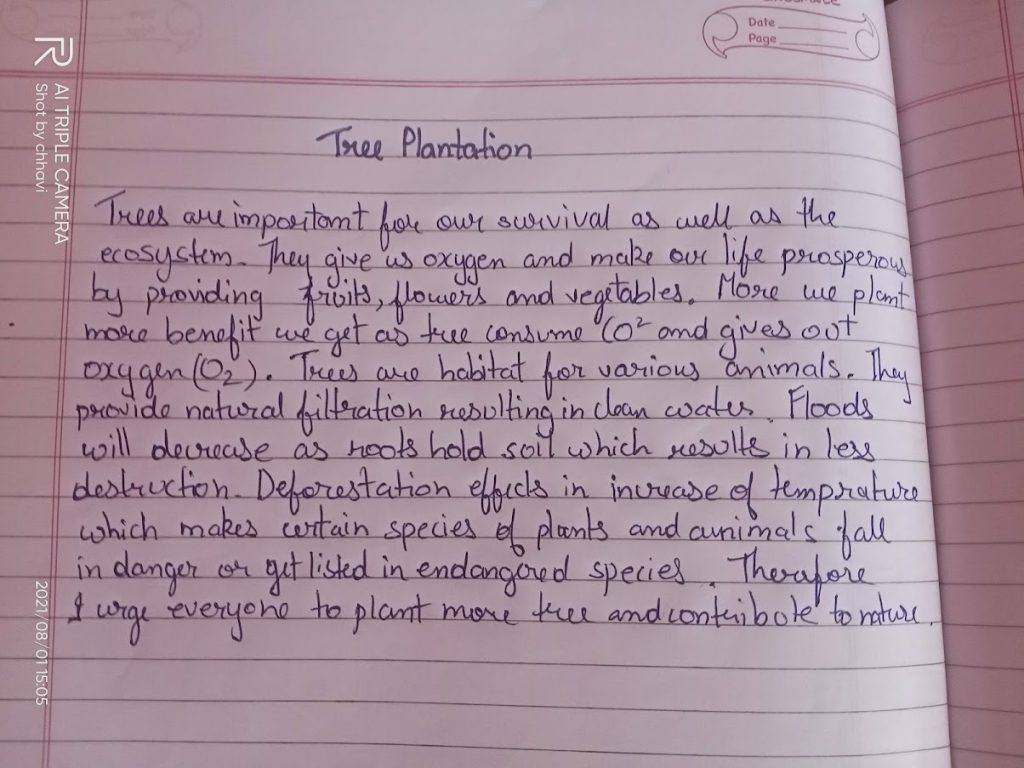 Date
Page
Tree Plantation
Trees are important for our survival as well as the
ecosystem. They give us oxygen and make our life prosperous
by providing fruits, flowers and vegetables. More we plant
more benefit we get as tree consume CO² and gives out
oxygen (O₂). Trees are habitat for various animals. They
provide natural filtration resulting in clean water. Floods
will decrease as roots hold soil which results in less
destruction. Deforestation effects in increase of temprature
which makes certain species of plants and animals fall
in danger or get listed in endangered species. Therefore
I urge everyone to plant more tree and contribute to nature.
R
AI TRIPLE CAMERA
Shot by chhavi
2021/08/01 15:05